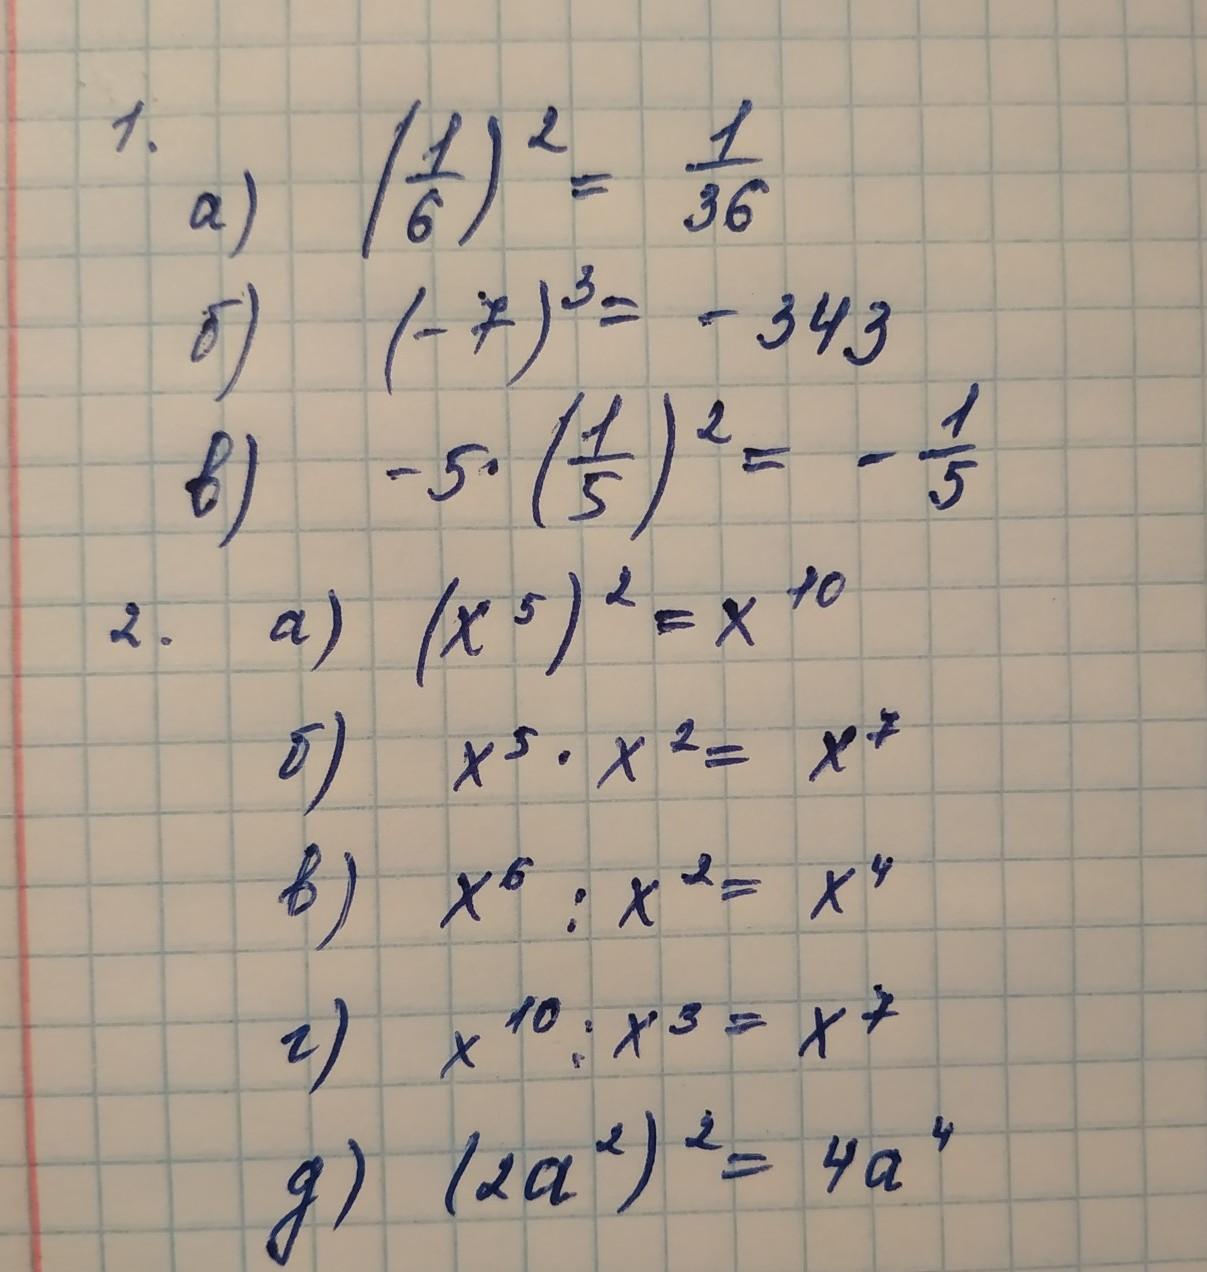 1.
а) (1/6)² = 1/36
б) (-7)³ = -343
в) -5·(1/5)² = -1/5
2. а) (x⁵)² = x¹⁰
б) x⁵·x² = x⁷
в) x⁶ : x² = x⁴
г) x¹⁰ : x³ = x⁷
д) (2a²)² = 4a⁴